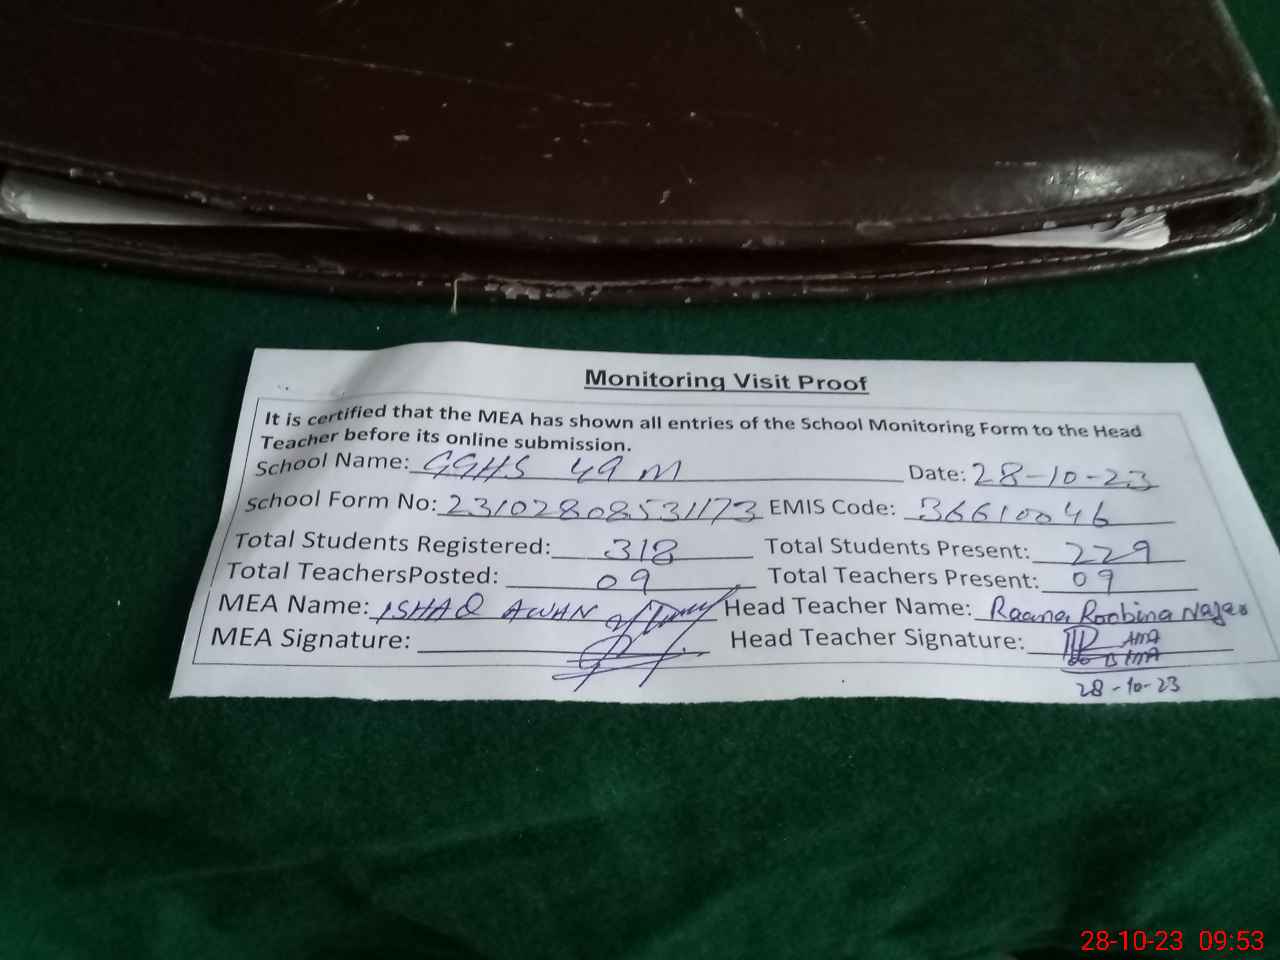 Monitoring Visit Proof
It is certified that the MEA has shown all entries of the School Monitoring Form to the Head
Teacher before its online submission.
School Name: GGHS 49 M Date: 28-10-23
School Form No: 23102808531173 EMIS Code: 36610046
Total Students Registered: 318 Total Students Present: 229
Total TeachersPosted: 09 Total Teachers Present: 09
MEA Name: ISHAQ AWAN Head Teacher Name: Raana Roobina Nagar
MEA Signature: Head Teacher Signature:
28-10-23
28-10-23 09:53